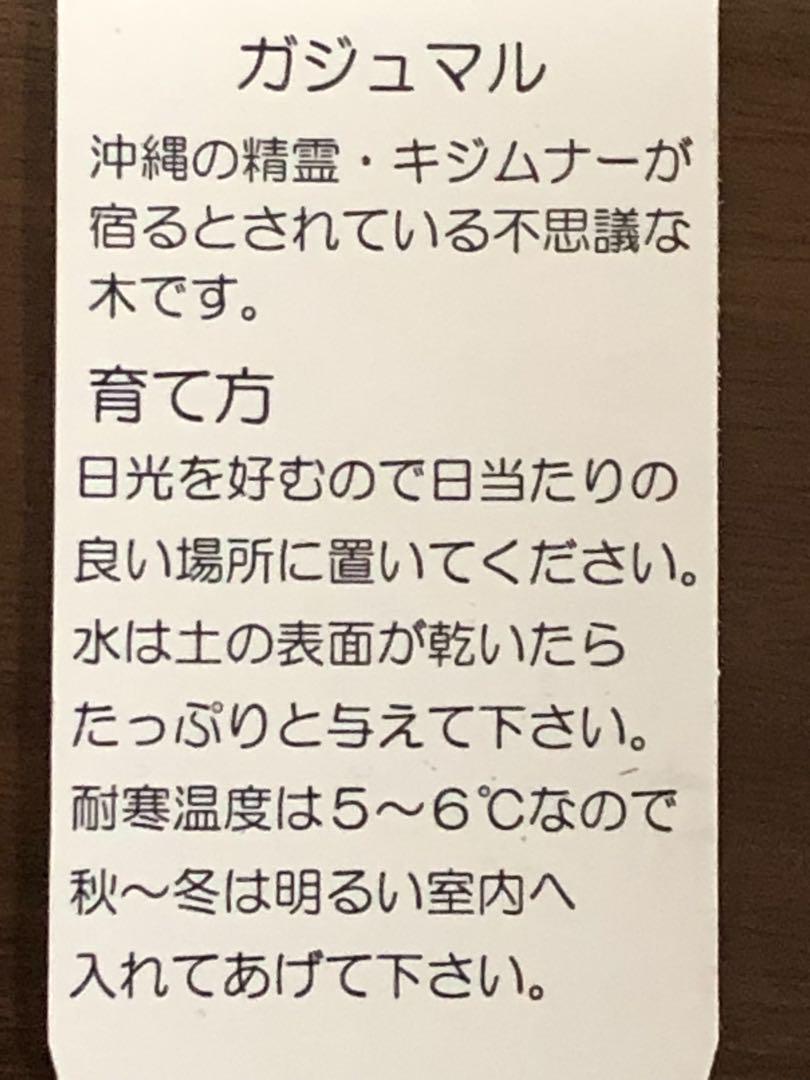 ガジュマル
沖縄の精霊・キジムナーが
宿るとされている不思議な
木です。
育て方
日光を好むので日当たりの
良い場所に置いてください。
水は土の表面が乾いたら
たっぷりと与えて下さい。
耐寒温度は5〜6℃なので
秋〜冬は明るい室内へ
入れてあげて下さい。